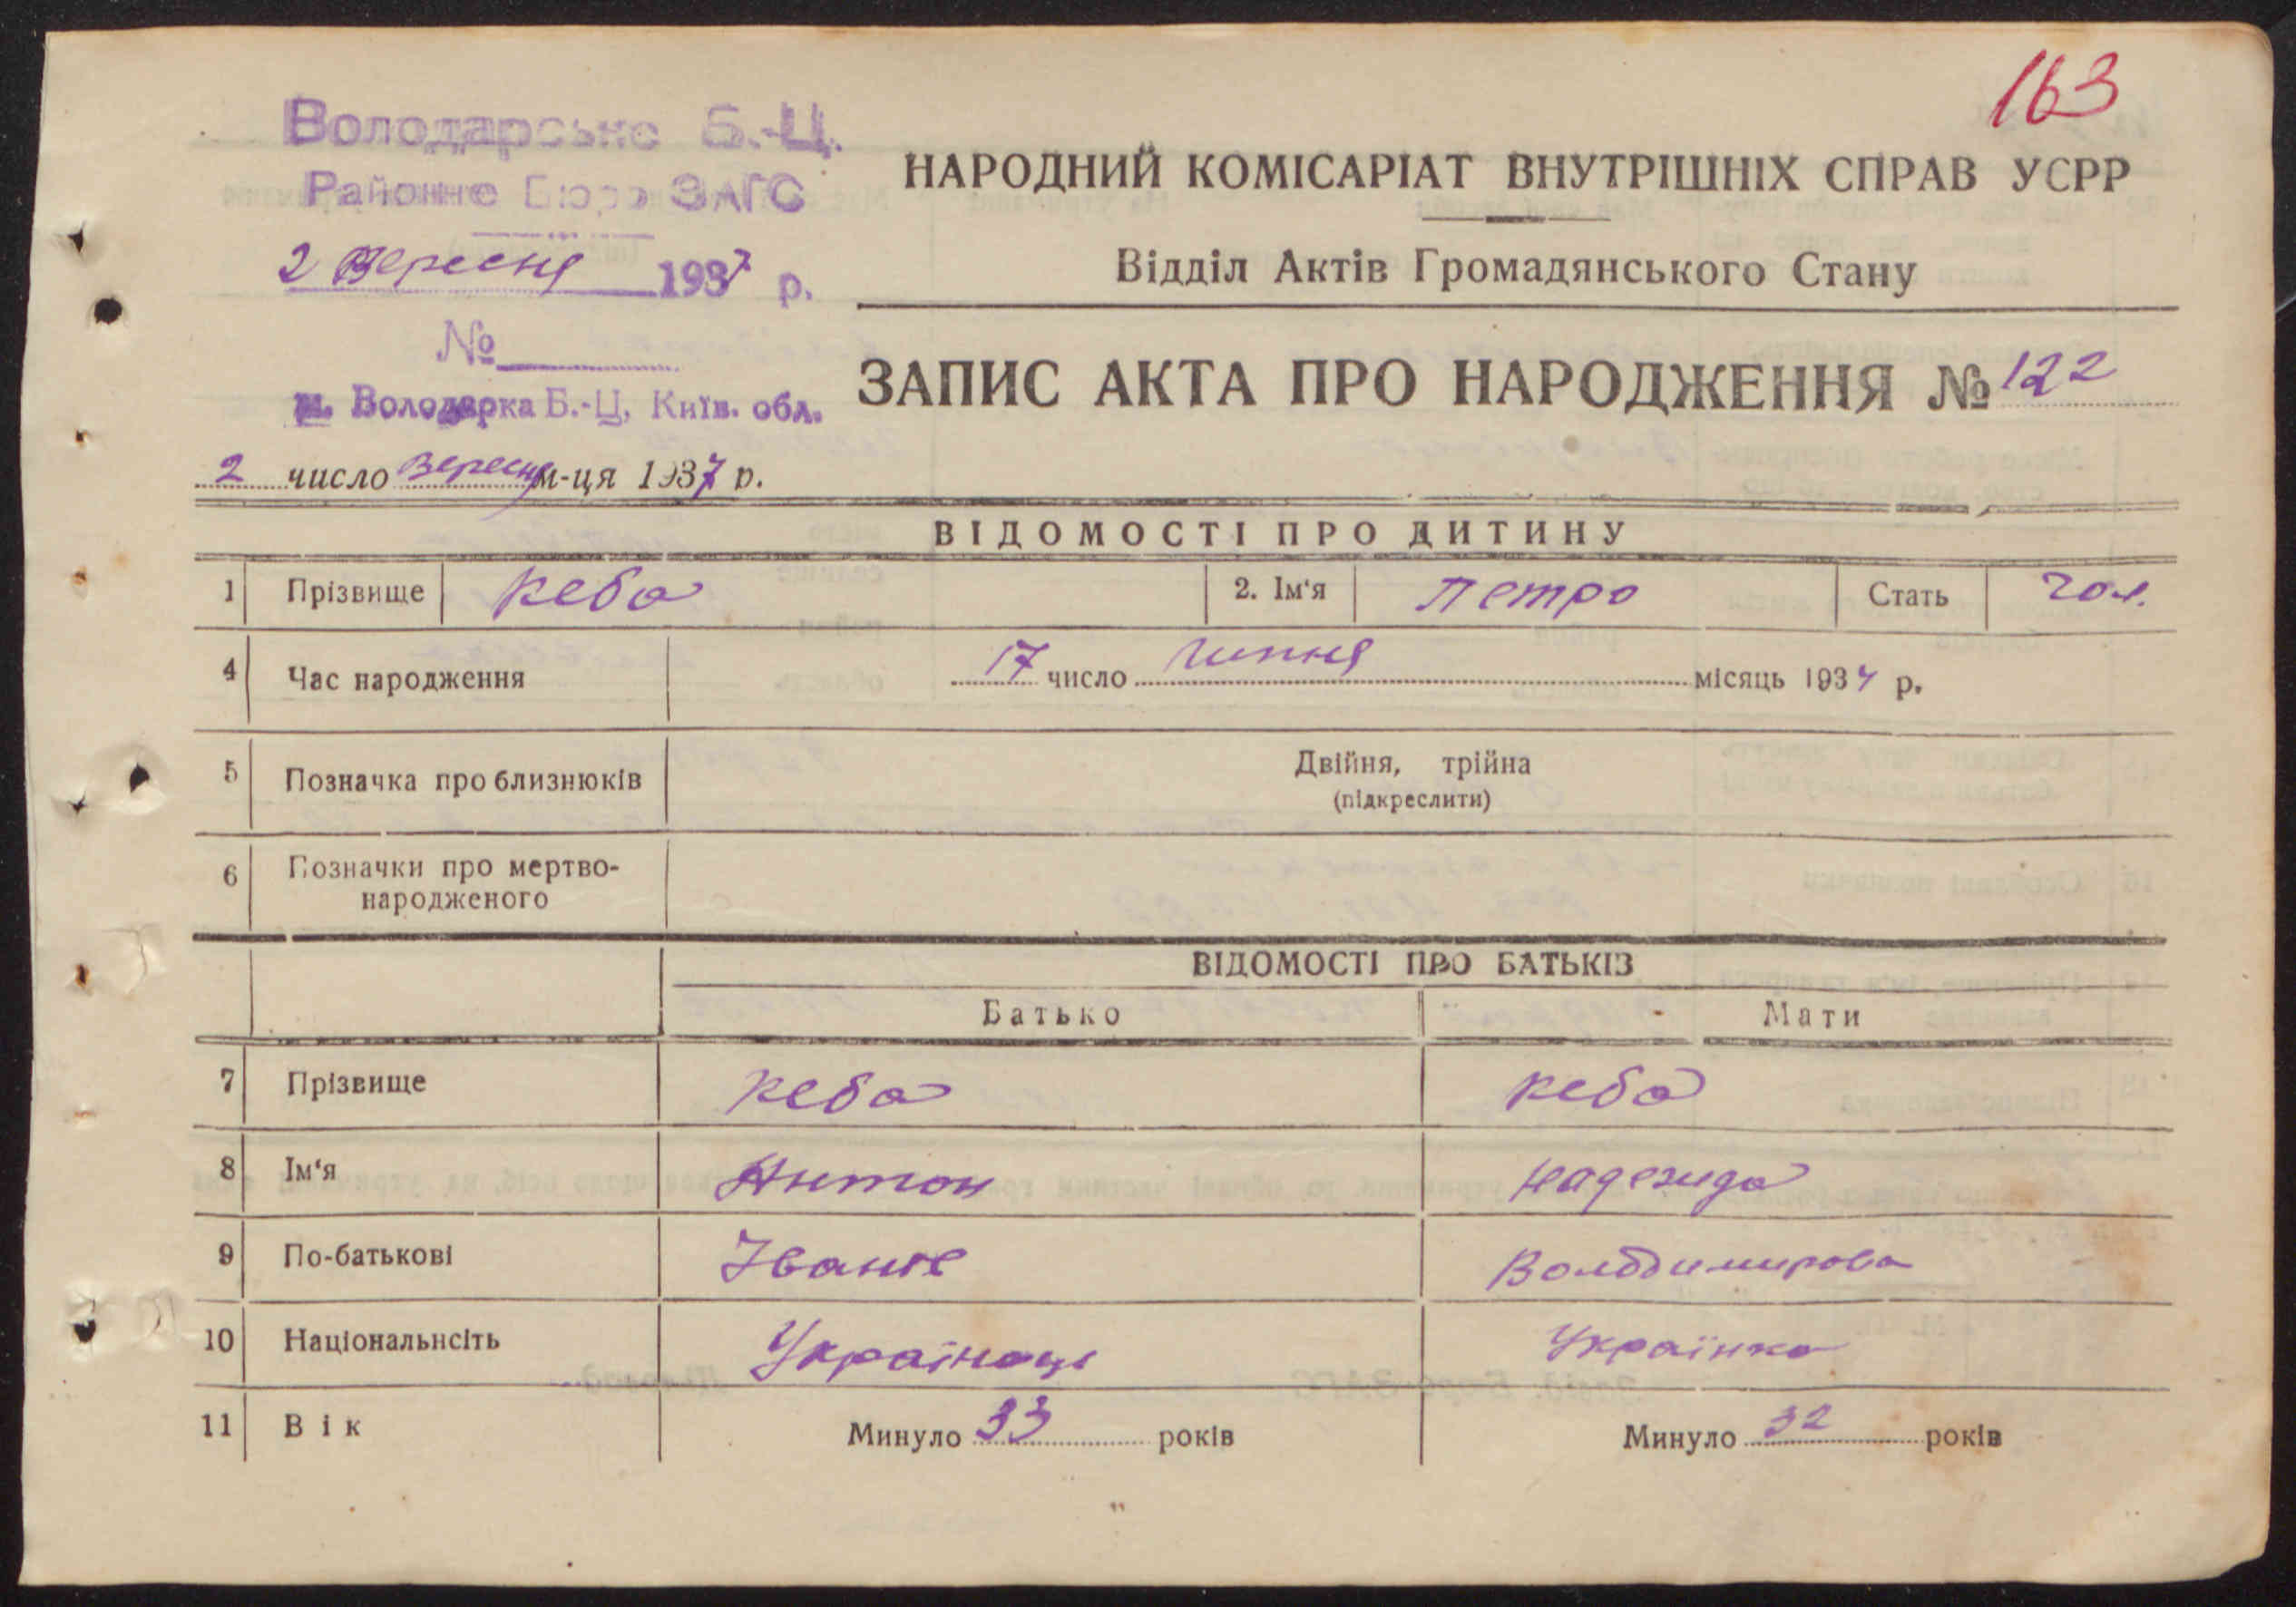 163
Володарське Б.-Ц.
Районне Бюро ЗАГС
2 Вересня 1937 р.
№
м. Володарка Б.-Ц, Київ. обл.
НАРОДНИЙ КОМІСАРІАТ ВНУТРІШНІХ СПРАВ УСРР
Відділ Актів Громадянського Стану
ЗАПИС АКТА ПРО НАРОДЖЕННЯ № 122
2 число Вересня м-ця 1937 р.
ВІДОМОСТІ ПРО ДИТИНУ
1 Прізвище Кеба 2. Ім'я Петро Стать чол.
4 Час народження 17 число липня місяць 1937 р.
5 Позначка про близнюків Двійня, трійна
(підкреслити)
6 Позначки про мертво-
народженого
ВІДОМОСТІ ПРО БАТЬКІВ
Батько Мати
7 Прізвище Кеба Кеба
8 Ім'я Антон Надежда
9 По-батькові Іванів Володимирова
10 Національнсіть Українець Українка
11 Вік Минуло 33 років Минуло 32 років